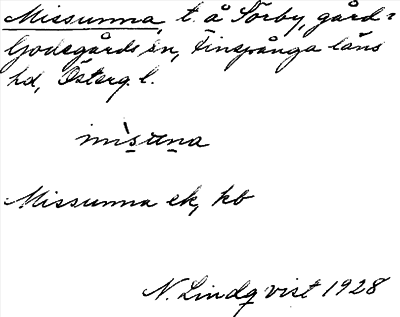 Missunna, t. å Sörby, gård=
Godegårds sn, Finspånga läns
hd, Österg. l.
mìsuna
Missunna ek, kb
N. Lindqvist 1928